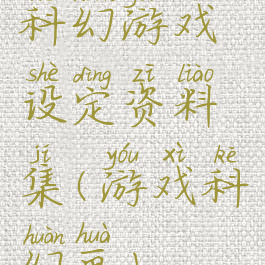 科幻游戏
shè dìng zī liào
设定资料
jí yóu xì kē
集(游戏科
huàn huà
幻画)